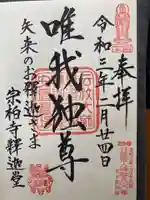 奉拝
令和三年二月廿四日
唯我独尊
矢来のお釈迦さま
宗柏寺釋迦堂